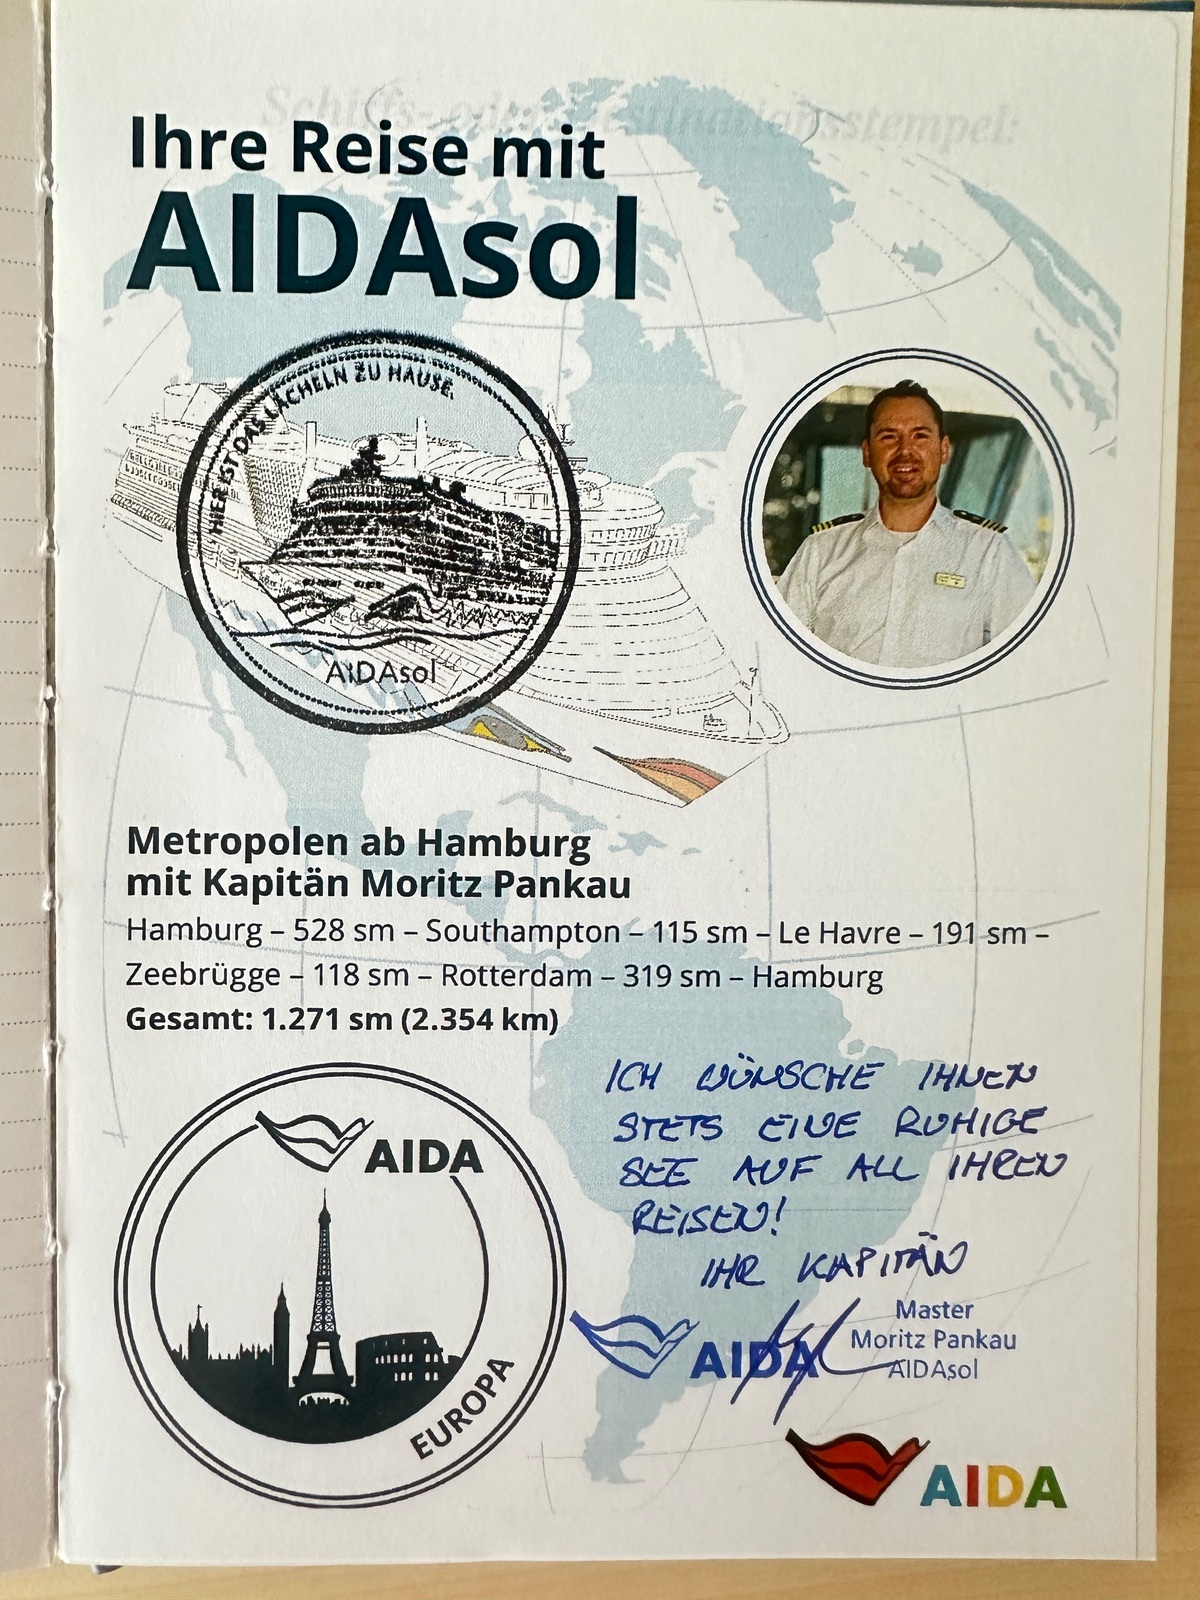 Schiffs- oder Destinationsstempel:
Ihre Reise mit
AIDAsol
HIER IST DAS LÄCHELN ZU HAUSE.
AIDAsol
Metropolen ab Hamburg
mit Kapitän Moritz Pankau
Hamburg – 528 sm – Southampton – 115 sm – Le Havre – 191 sm –
Zeebrügge – 118 sm – Rotterdam – 319 sm – Hamburg
Gesamt: 1.271 sm (2.354 km)
ICH WÜNSCHE IHNEN
STETS EINE RUHIGE
SEE AUF ALL IHREN
REISEN!
IHR KAPITÄN
AIDA
EUROPA
AIDA
Master
Moritz Pankau
AIDAsol
AIDA